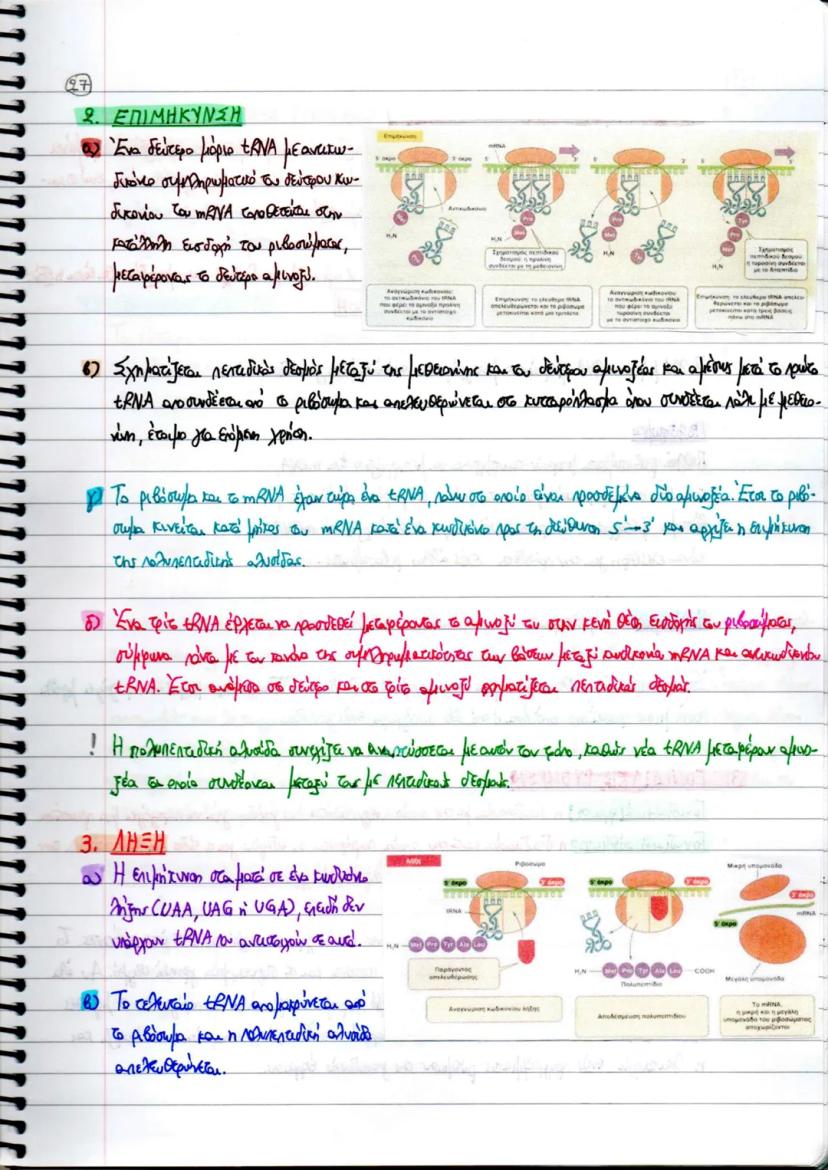 27
2. ΕΠΙΜΗΚΥΝΣΗ
α) Ένα δεύτερο μόριο tRNA με αντικω-
δικόνιο συμπληρωματικό του δεύτερου κω-
δικονίου του mRNA τοποθετείται στην
κατάλληλη εισδοχή του ριβοσώματος,
μεταφέροντας το δεύτερο αμινοξύ.
Επιμήκυνση
mRNA
5' άκρο
3' άκρο
5'
3'
5'
3'
5'
3'
Αντικωδικόνιο
H₂N
Met
Pro
H₂N
Met
Pro
H₂N
Met
Pro
Tyr
H₂N
Met
Σχηματισμός πεπτιδικού
δεσμού: η προλίνη
συνδέεται με τη μεθειονίνη
Σχηματισμός
πεπτιδικού δεσμού:
η τυροσίνη συνδέεται
με το διπεπτίδιο
Αναγνώριση κωδικονίου:
το αντικωδικόνιο του tRNA
που φέρει το αμινοξύ προλίνη
συνδέεται με το αντίστοιχο
κωδικόνιο
Επιμήκυνση: το ελεύθερο tRNA
απελευθερώνεται και το ριβόσωμα
μετακινείται κατά μια τριπλέτα
Αναγνώριση κωδικονίου:
το αντικωδικόνιο του tRNA
που φέρει το αμινοξύ
τυροσίνη συνδέεται
με το αντίστοιχο κωδικόνιο
Επιμήκυνση: το ελεύθερο tRNA απελευ-
θερώνεται και το ριβόσωμα
μετακινείται κατά τρεις βάσεις
πάνω στο mRNA
β) Σχηματίζεται πεπτιδικός δεσμός μεταξύ της μεθειονίνης και του δεύτερου αμινοξέος και αμέσως μετά το πρώτο
tRNA αποσυνδέεται από το ριβόσωμα και απελευθερώνεται στο κυτταρόπλασμα όπου συνδέεται πάλι με μεθειο-
νίνη, έτοιμο για επόμενη χρήση.
γ) Το ριβόσωμα και το mRNA έχουν τώρα ένα tRNA, πάνω στο οποίο είναι προσδεμένα δύο αμινοξέα. Έτσι το ριβό-
σωμα κινείται κατά μήκος του mRNA κατά ένα κωδικόνιο προς τη διεύθυνση 5'→3' και αρχίζει η επιμήκυνση
της πολυπεπτιδικής αλυσίδας.
δ) Ένα τρίτο tRNA έρχεται να προσδεθεί μεταφέροντας το αμινοξύ του στην κενή θέση εισδοχής του ριβοσώματος,
σύμφωνα πάντα με τον κανόνα της συμπληρωματικότητας των βάσεων μεταξύ κωδικονίου mRNA και αντικωδικονίου
tRNA. Έτσι ανάμεσα στο δεύτερο και στο τρίτο αμινοξύ σχηματίζεται πεπτιδικός δεσμός.
! Η πολυπεπτιδική αλυσίδα συνεχίζει να αναπτύσσεται με αυτόν τον τρόπο, καθώς νέα tRNA μεταφέρουν αμινο-
ξέα τα οποία συνδέονται μεταξύ τους με πεπτιδικούς δεσμούς.
3. ΛΗΞΗ
α) Η επιμήκυνση σταματά σε ένα κωδικόνιο
λήξης (UAA, UAG ή UGA), επειδή δεν
υπάρχουν tRNA που αντιστοιχούν σε αυτά.
β) Το τελευταίο tRNA απομακρύνεται από
το ριβόσωμα και η πολυπεπτιδική αλυσίδα
απελευθερώνεται.
Λήξη
Ριβόσωμα
5' άκρο
3' άκρο
tRNA
H₂N
Met Pro Tyr Ala Leu
Παράγοντας
απελευθέρωσης
Αναγνώριση κωδικονίου λήξης
5' άκρο
3' άκρο
H₂N
Met Pro Tyr Ala Leu
COOH
Πολυπεπτίδιο
Αποδέσμευση πολυπεπτιδίου
Μικρή υπομονάδα
3' άκρο
mRNA
5' άκρο
Μεγάλη υπομονάδα
Το mRNA,
η μικρή και η μεγάλη
υπομονάδα του ριβοσώματος
αποχωρίζονται